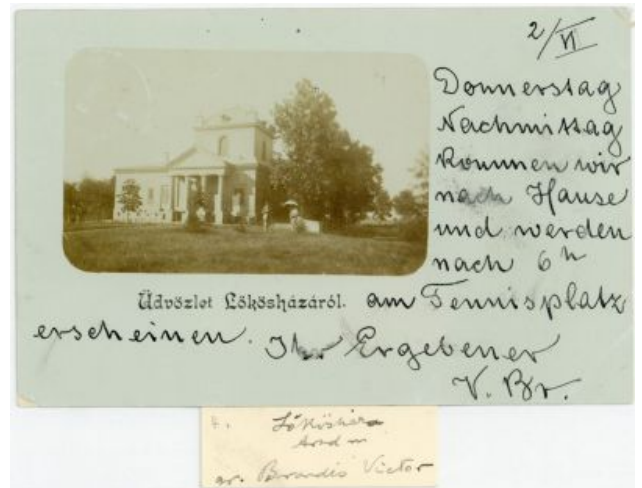 2/VI
Donnerstag
Nachmittag
kommen wir
nach Hause
und werden
nach 6h
Üdvözlet Lőkösházáról. am Tennisplatz
erscheinen. Ihr Ergebener
V. Br.
Lőkösháza
Arad m
gr. Brandis Victor